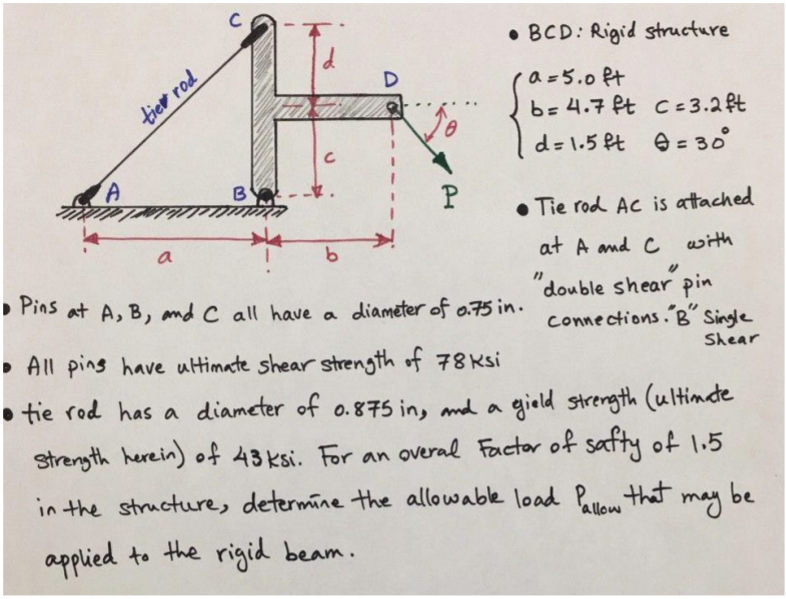 C
D
d
tie rod
c
θ
A
B
P
a
b
• BCD: Rigid structure
a = 5.0 ft
b = 4.7 ft c = 3.2 ft
d = 1.5 ft θ = 30°
• Tie rod AC is attached
at A and C with
"double shear" pin
connections. "B" Single
Shear
• Pins at A, B, and C all have a diameter of 0.75 in.
• All pins have ultimate shear strength of 78 Ksi
• tie rod has a diameter of 0.875 in, and a yield strength (ultimate
strength herein) of 43 Ksi. For an overal Factor of safty of 1.5
in the structure, determine the allowable load Pallow that may be
applied to the rigid beam.